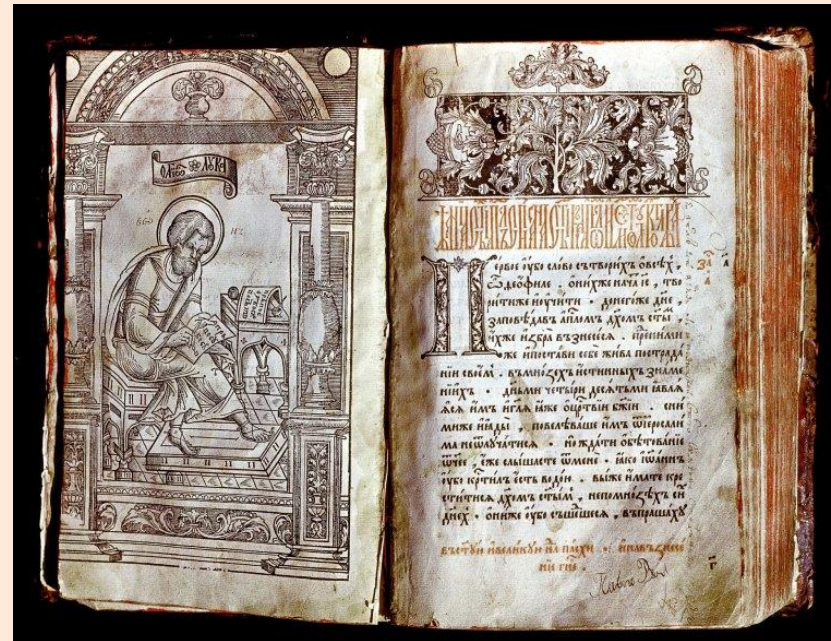 ЛꙊКА
Первое ѹбо слово сътворихъ ѡвсѣхъ ,
ѽ деѻфиле . ѡнихже нача іс҃ , тво
ритиже иѹчити . донегоже дн҃е ,
заповѣдавъ апⷭ҇ломъ дх҃омъ ст҃ыⷨ ,
ихже избра възнесесѧ . преⷣними
же ипостави себе жива пострада
нїи своеⷨ . въмнозѣхъ истинныхъ знаме
нїихъ . дньми четыридесѧтьми ꙗвлѧ
ѧсѧ имъ иглѧ ꙗже ѡцрⷭ҇твїи бж҃їи . сни
миже иꙗды . повелѣваше имъ ѿіерⷭ҇али
ма неѿлꙋчатисѧ . нождати обѣтованїе
ѿч҃ее , еже слышасте ѿмене . ꙗко іѡаннъ
ѹбо крⷭ҇тилъ есть водою . выже имате кре
ститисѧ дх҃омъ ст҃ыⷨ , непомнозѣхъ сиⷯ
дн҃ехъ . ониже ѹбо съшешесѧ , въпрашахꙋ
въстꙋю ивеликꙋю нⷣлю пасхи . инавъзнесе
нїе гн҃е .